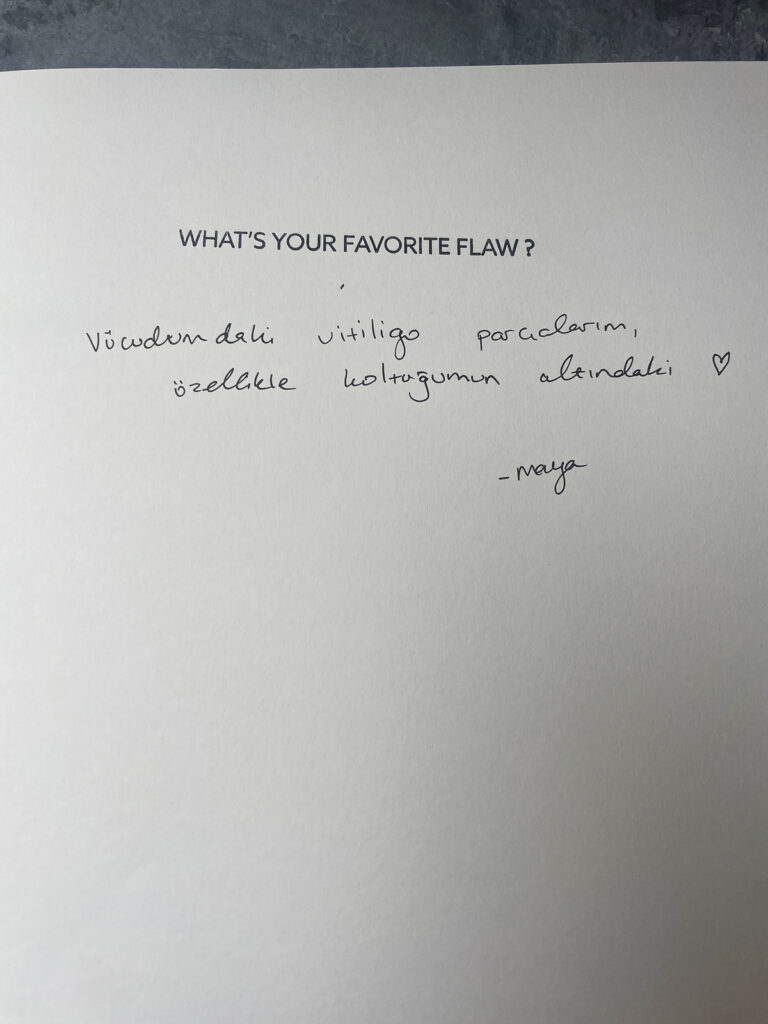 WHAT'S YOUR FAVORITE FLAW ?
Vücudumdaki vitiligo parçalarım,
özellikle koltuğumun altındaki ♡
- maya